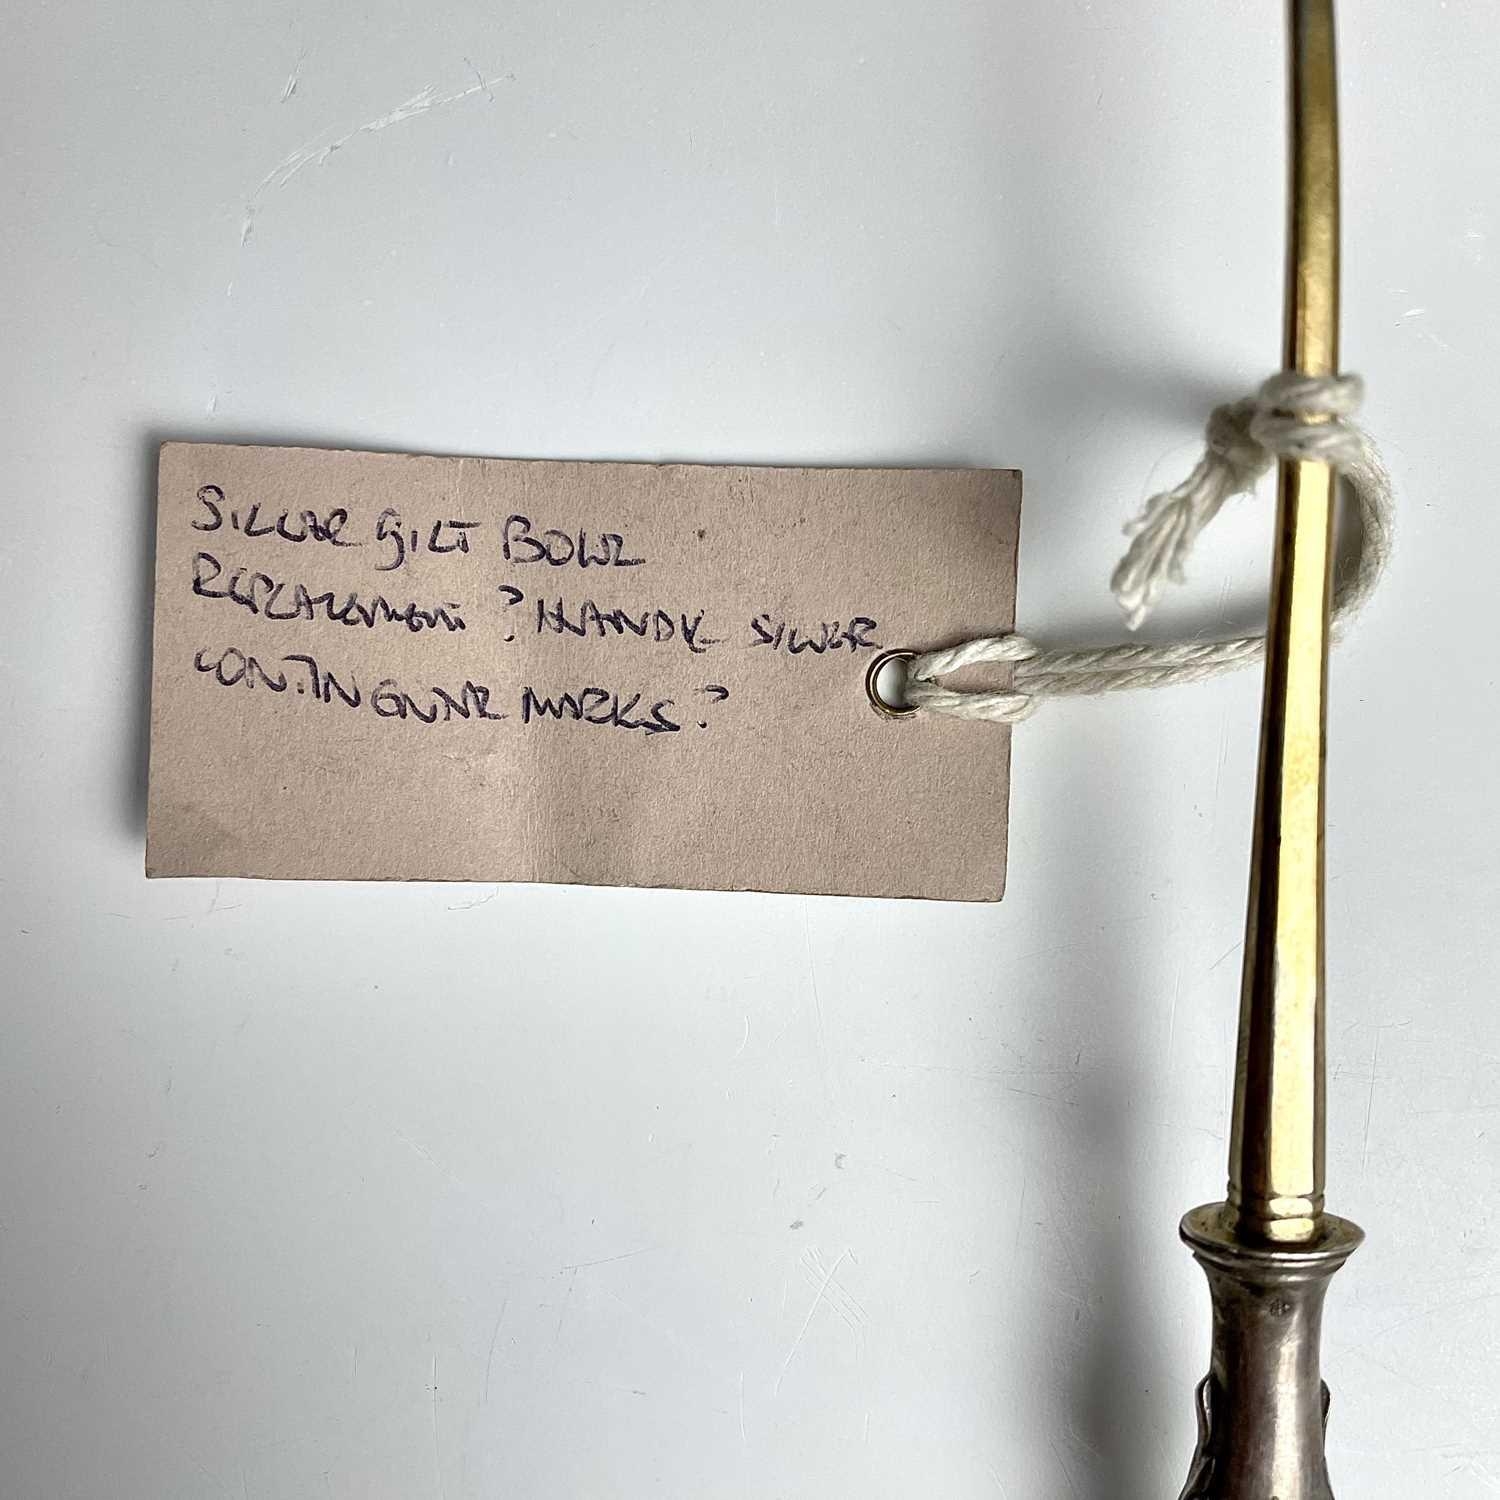 SILVER GILT BOWL
REPLACEMENT? HANDLE SILVER
CONTINENTAL MARKS?